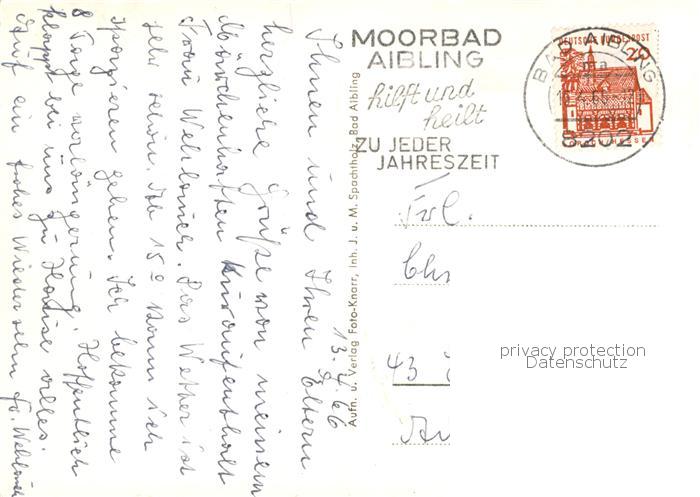 MOORBAD
AIBLING
hilft und
heilt
ZU JEDER
JAHRESZEIT
DEUTSCHE BUNDESPOST
20
BAD AIBLING
8202
Frl.
43
privacy protection
Datenschutz
Aufn. u. Verlag Foto-Knarr, Inh. J. u. M. Spachtholz, Bad Aibling
13. 4. 66
Ihnen und Ihren Eltern
herzliche Grüße von meinem
Kuraufenthalt
Frau Das Wetter ist
sehr schön. Ab 15° kann ich
spazieren gehen. Ich bekomme
8 Tage Verlängerung. Hoffentlich
klappt bei uns zu Hause alles.
Auf ein frohes Wiedersehn